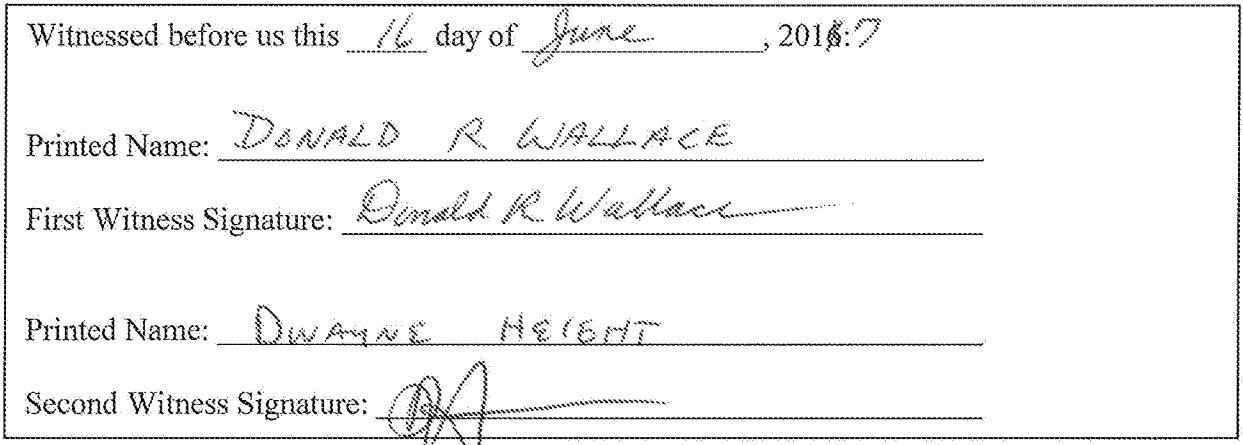 Witnessed before us this 16 day of June, 2016: 7
Printed Name: DONALD R WALLACE
First Witness Signature: Donald R Wallace
Printed Name: DWAYNE HEIGHT
Second Witness Signature: